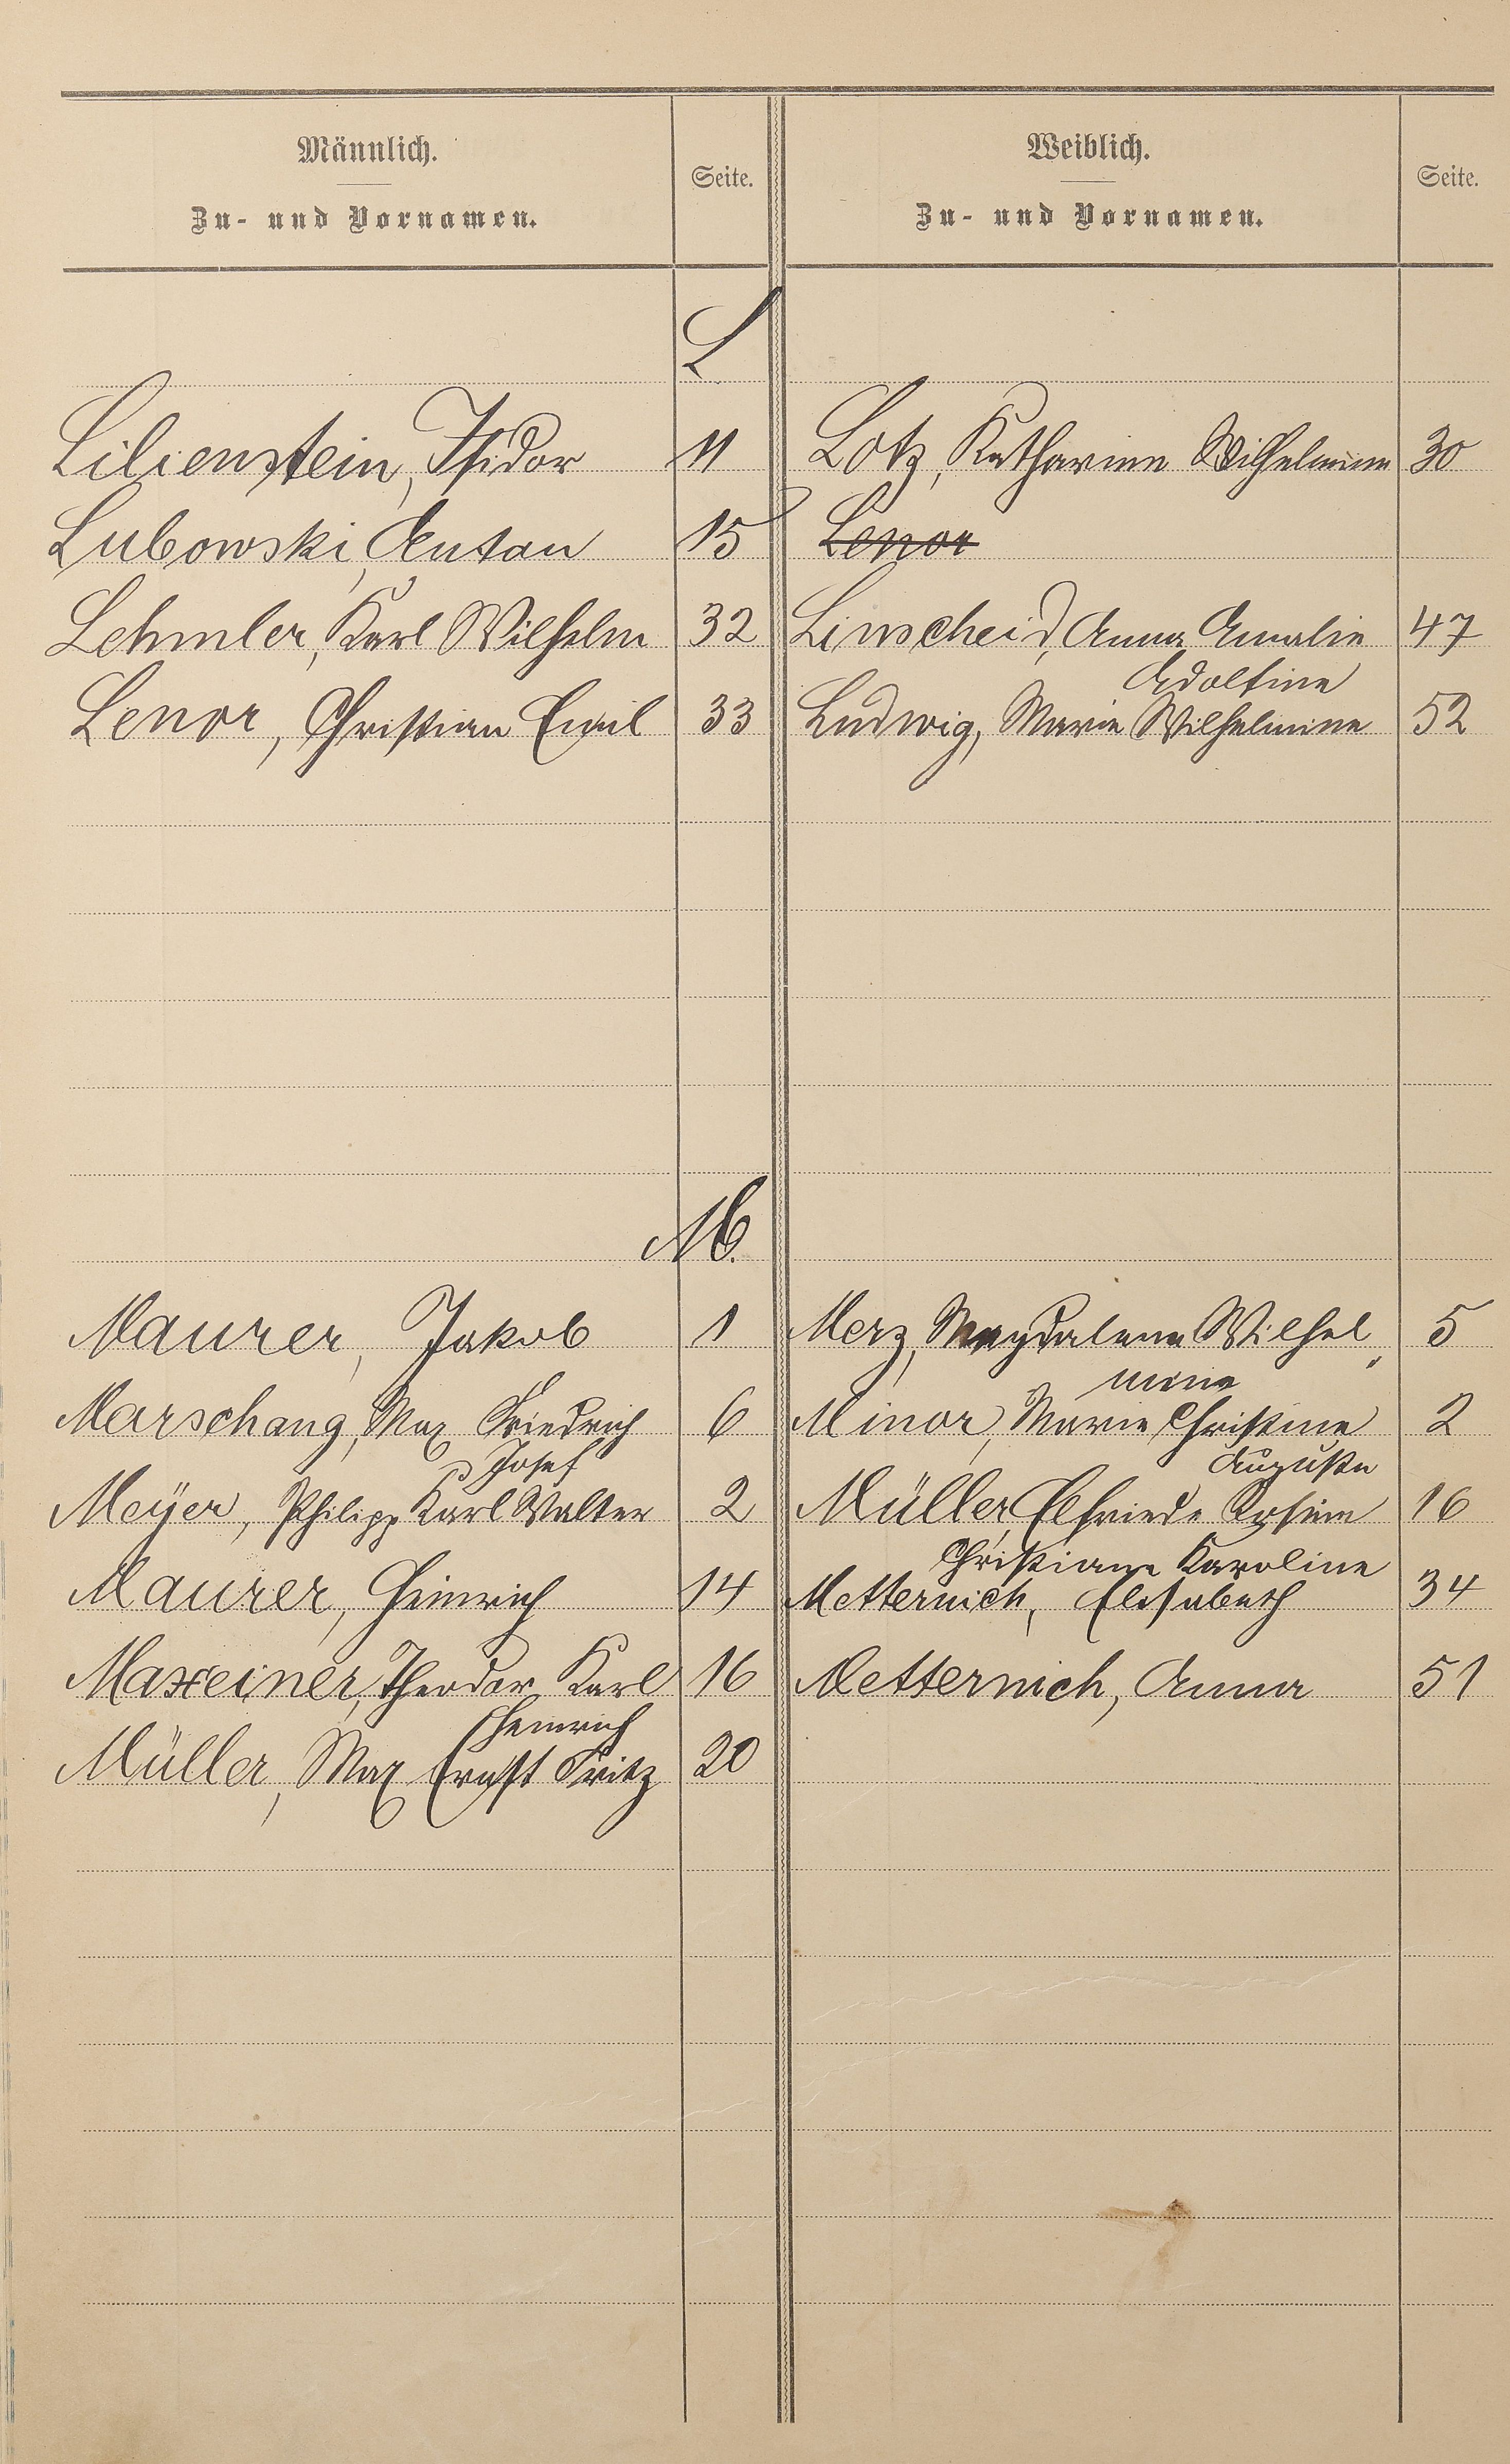 Männlich.
Zu- und Vornamen.
Seite.
Weiblich.
Zu- und Vornamen.
Seite.
L
Lilienstein, Isidor 11 Lotz, Katharine Wilhelmine 30
Lubowski, Anton 15 Lenor
Lehmler, Karl Wilhelm 32 Linscheid, Anna Amalie 47
Adolfine
Lenor, Christian Emil 33 Ludwig, Marie Wilhelmine 52
M.
Maurer, Jakob 1 Merz, Magdalena Wilhel„ 5
mine
Marschang, Max Friedrich 6 Minor, Marie Christine 2
Josef Auguste
Meÿer, Philipp Karl Walter 2 Müller, Elfriede Rosina 16
Christiane Karoline
Maurer, Heinrich 14 Metternich, Elisabeth 34
Maxeiner, Theodor Karl 16 Metternich, Anna 51
Heinrich
Müller, Max Ernst Fritz 20